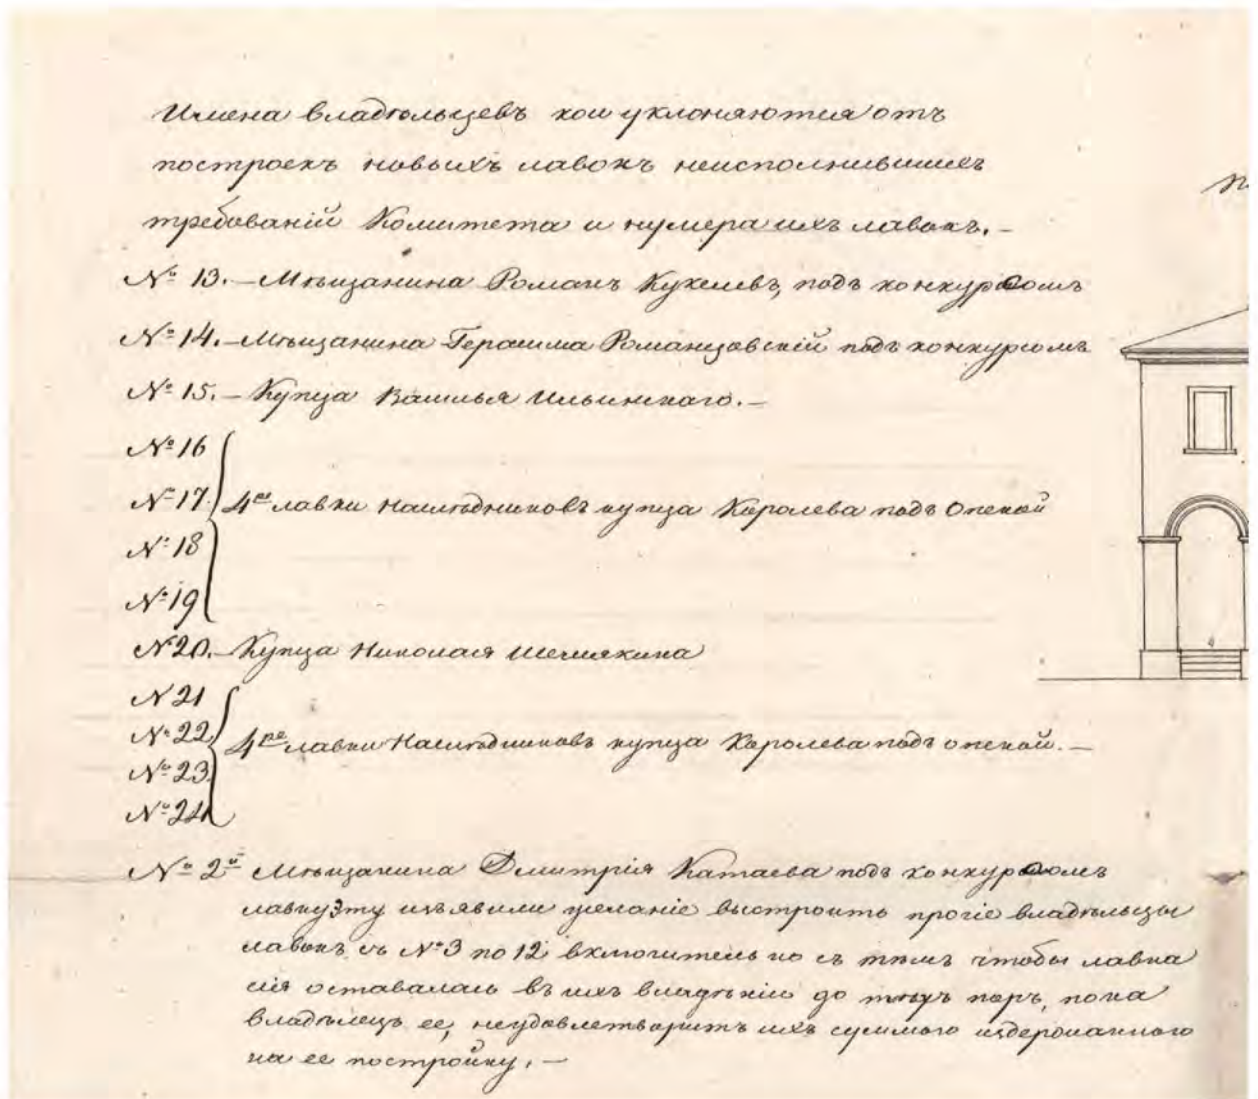 Имена владѣльцевъ кои уклоняются отъ
построекъ новыхъ лавокъ неисполнившихъ
требованій Комитета и нумера ихъ лавокъ. –
№ 13. – Мѣщанина Романъ Кукелевъ, подъ конкурсомъ
№ 14. – Мѣщанина Герасима Романцовскій подъ конкурсомъ
№ 15. – Купца Василья Ильинскаго. –
№ 16
№ 17. 4ре лавки Наслѣдниковъ купца Королева подъ Опекой
№ 18
№ 19
№ 20. – Купца Николая Шемякина
№ 21
№ 22 4ре лавки Наслѣдниковъ купца Королева подъ опекой. –
№ 23
№ 24
№ 2й Мѣщанина Дмитрія Катаева подъ конкурсомъ
лавку Эту изъявили желаніе выстроить прочіе владѣльцы
лавокъ съ № 3 по 12 включительно съ тѣмъ чтобы лавка
сія оставалась въ ихъ владѣніи до тѣхъ поръ, пока
владѣлецъ ее, неудовлетворитъ ихъ суммою издержанною
на ее постройку. –